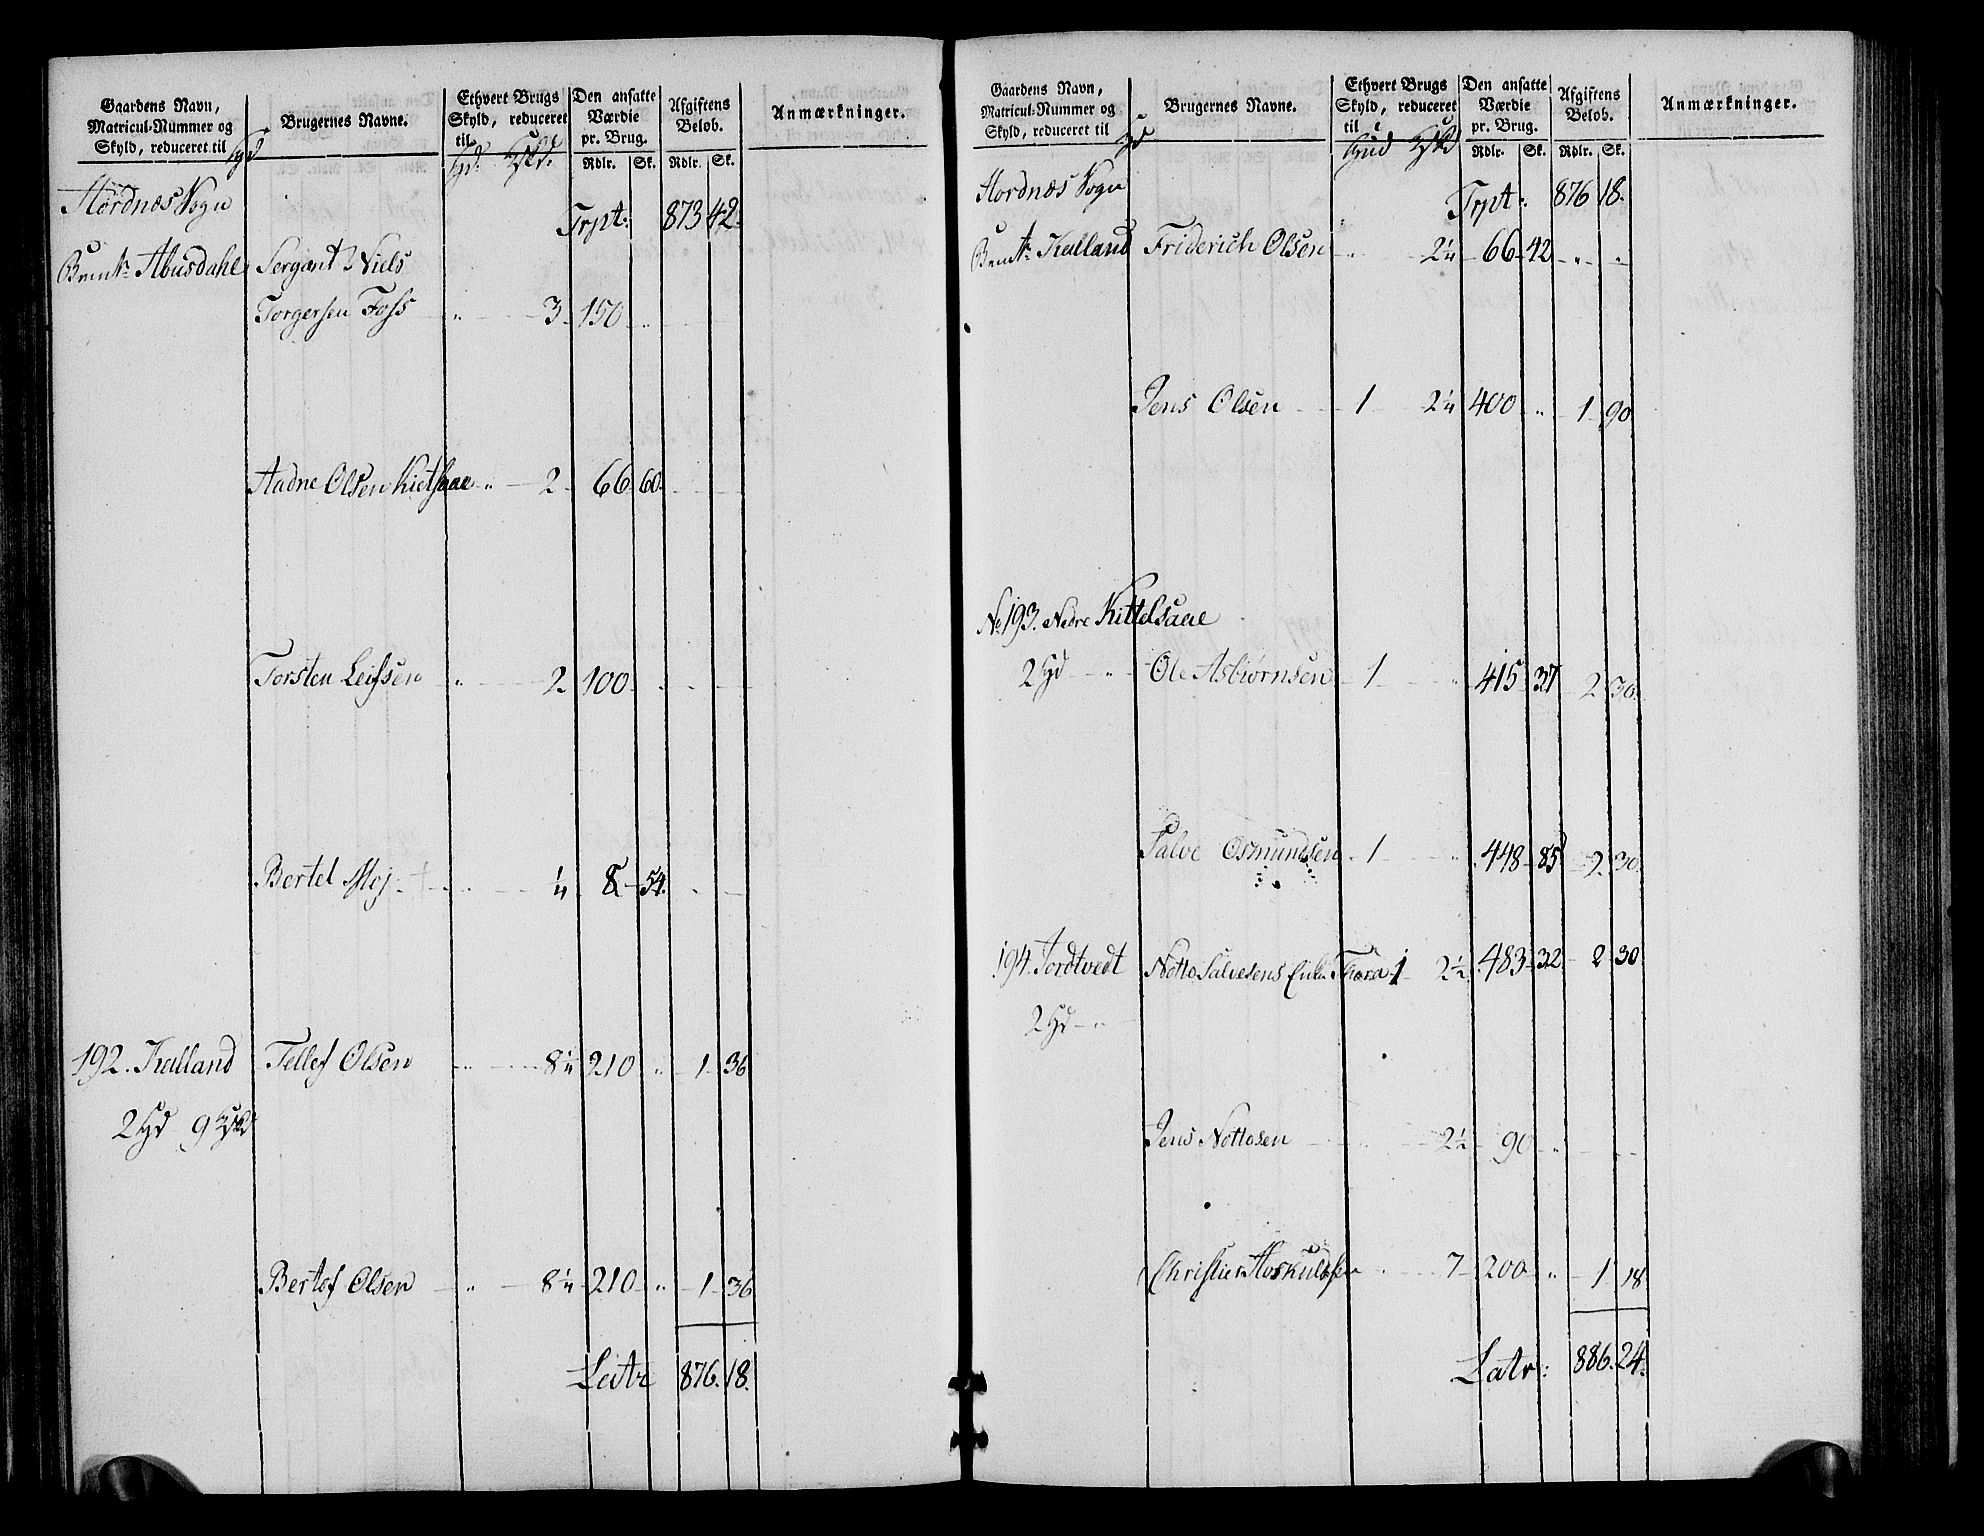 Gaardens Navn, Matricul-Nummer og Skyld, reduceret til Hd
Brugernes Navne.
Ethvert Brugs Skyld, reduceret til Hd. Hskd.
Den ansatte Værdie pr. Brug. Rdlr. Sk.
Afgiftens Beløb. Rdlr. Sk.
Anmærkninger.
Hordnæs Sogn Trpt: 873 42.
Bemte Abusdahl Sergant Niels
Torgersen Foss " 3 150 "
Aadne Olsen Kietsaae " 2 66 60
Torsten Leifsen " 2 100 "
Bertel Moj " ¼ 8 54
192. Kalland Tellef Olsen " 8¼ 210 " 1 36
2 Hd 9 Hskd
Bertof Olsen " 8¼ 210 " 1 36
Latr 876. 18.
Gaardens Navn, Matricul-Nummer og Skyld, reduceret til Hd
Brugernes Navne.
Ethvert Brugs Skyld, reduceret til Hud Hskd
Den ansatte Værdie pr. Brug. Rdlr. Sk.
Afgiftens Beløb. Rdlr. Sk.
Anmærkninger.
Hordnæs Sogn Trpt: 876 18.
Bemte Kalland Friderich Olsen " 2¼ 66 42 " "
Jens Olsen 1 2¼ 400 " 1 90
No 193. Nedre Kittelsaae
2 Hd " Ole Asbiørnsen 1 " 415 37 2 30.
Salve Osmundsen 1 " 448 85 2 30.
194. Jordtvedt Notto Salvesens Enke Thora 1 2½ 483 32 2 30
2 Hd "
Jens Nottosen " 2½ 90 "
Christian Hoskuldsen " 7 200 " 1 18
Latr: 886. 24.